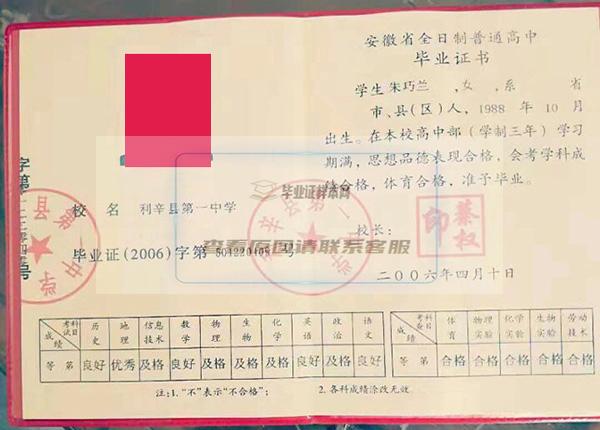 安徽省全日制普通高中
毕业证书
学生 朱巧兰 ,女 ,系 省
市、县(区)人, 1988 年 10 月
出生。在本校高中部(学制三年)学习
期满,思想品德表现合格,会考学科成
绩合格,体育合格,准予毕业。
校 名 利辛县第一中学
校长:
蔡权印
毕业证(2006)字第 501220108 号
二〇〇六年四月十日
毕业证样本网
查看原图请联系客服
考试科目 历史 地理 信息技术 数学 物理 生物 化学 英语 政治 语文
成绩
等第 良好 优秀 及格 良好 及格 及格 及格 良好 良好 良好
考查科目 体育 物理实验 化学实验 生物实验 劳动技术
成绩
等第 合格 合格 合格 合格 合格
注:1. “不”表示“不合格”; 2. 各科成绩涂改无效。